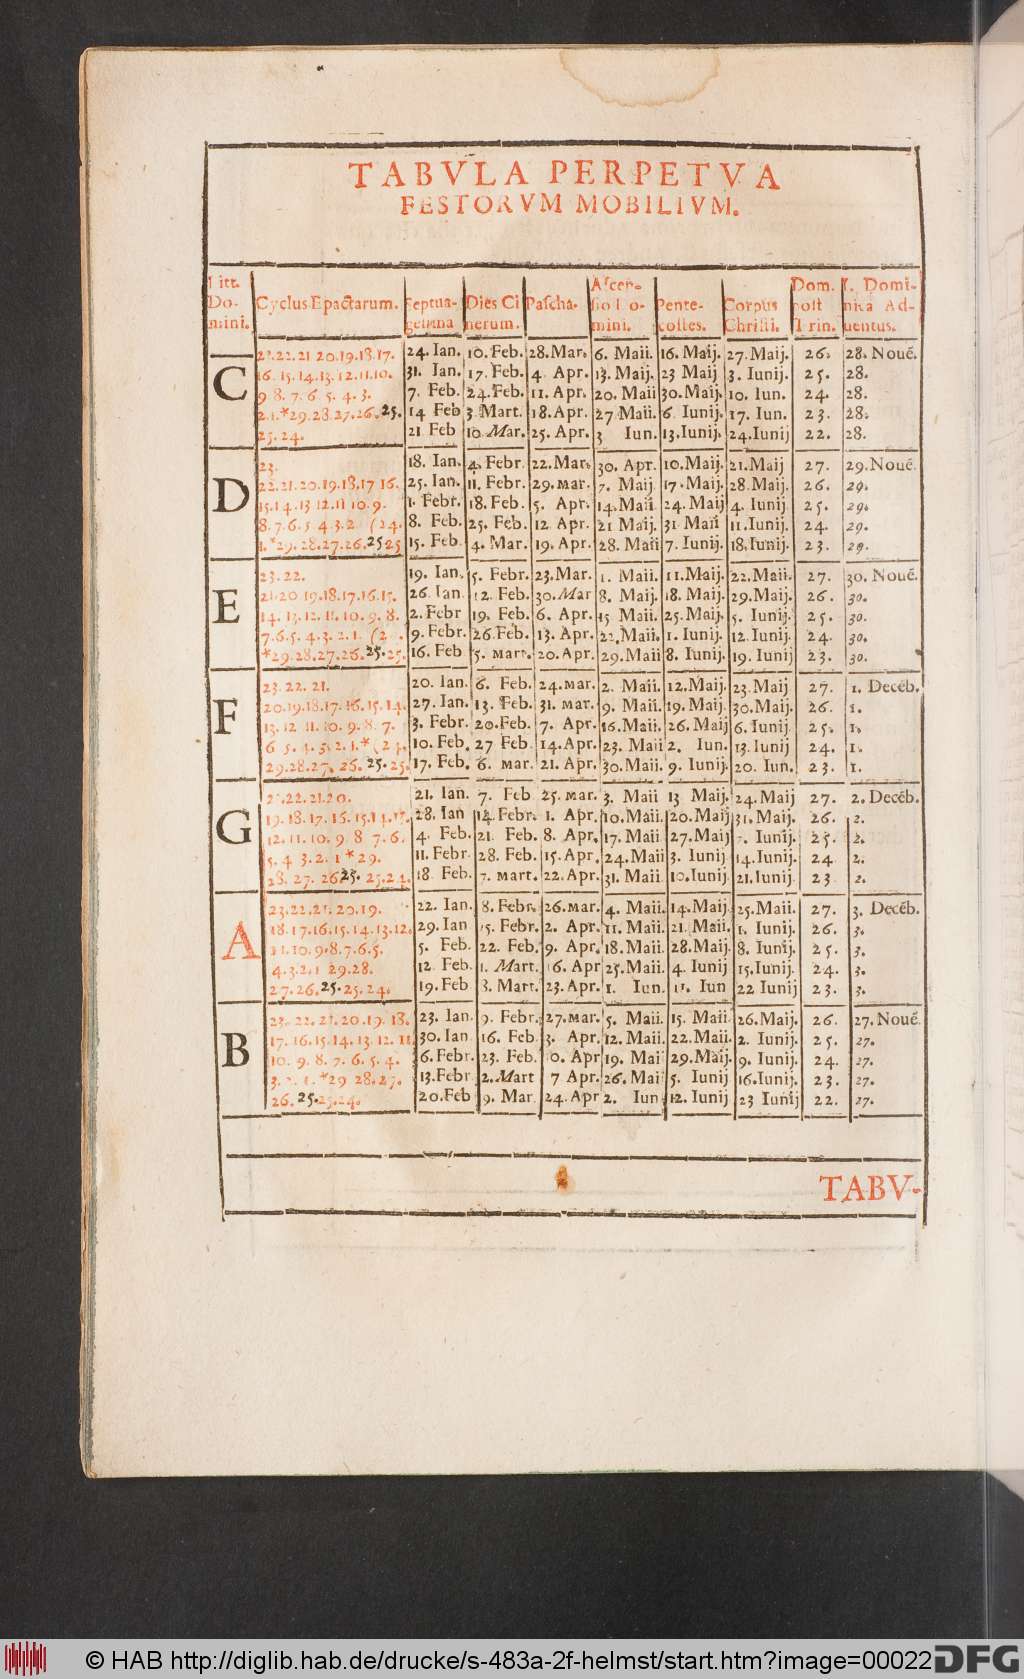 TABVLA PERPETVA
FESTORVM MOBILIVM.
Litt. Do- mini. Cyclus Epactarum. Septua- gesima Dies Ci nerum. Pascha. Ascen- sio Do- mini. Pente- costes. Corpus Christi. Dom. post Trin. I. Domi- nica Ad- uentus.
C
23.22.21 20.19.18.17. 24. Ian. 10. Feb. 28. Mar. 6. Maii. 16. Maij. 27. Maij. 26. 28. Nouẽ.
16. 15. 14. 13. 12. 11. 10. 31. Ian. 17. Feb. 4. Apr. 13. Maij. 23 Maij 3. Iunij. 25. 28.
9 8. 7. 6. 5. 4. 3. 7. Feb. 24. Feb. 11. Apr. 20. Maii 30. Maij. 10. Iun. 24. 28.
2.1.*29.28.27.26.25. 14 Feb 3 Mart. 18. Apr. 27 Maii. 6. Iunij. 17. Iun. 23. 28.
25. 24. 21 Feb 10. Mar. 25. Apr. 3 Iun. 13. Iunij. 24. Iunij 22. 28.
D
23. 18. Ian. 4. Febr. 22. Mar. 30. Apr. 10. Maij. 21. Maij 27. 29. Nouẽ.
22. 21. 20. 19. 18. 17 16. 25. Ian. 11. Febr. 29. Mar. 7. Maij 17. Maij. 28. Maij. 26. 29.
15. 14. 13 12. 11 10. 9. 1. Febr. 18. Feb. 5. Apr. 14. Maii 24. Maij 4. Iunij. 25. 29.
8. 7. 6. 5 4. 3. 2 (24. 8. Feb. 25. Feb. 12. Apr. 21 Maij. 31 Maii 11. Iunij. 24. 29.
1.*29. 28. 27. 26. 25 25 15. Feb. 4. Mar. 19. Apr. 28. Maii 7. Iunij. 18. Iunij. 23. 29.
E
23. 22. 19. Ian. 5. Febr. 23. Mar. 1. Maii. 11. Maij. 22. Maii. 27. 30. Nouẽ.
21. 20 19. 18. 17. 16. 15. 26. Ian 12. Feb. 30. Mar 8. Maij. 18. Maij. 29. Maij. 26. 30.
14. 13. 12. 11. 10. 9. 8. 2. Febr 19. Feb. 6. Apr. 15 Maii. 25. Maij. 5. Iunij. 25. 30.
7. 6. 5. 4. 3. 2. 1. 9. Febr. 26. Feb. 13. Apr. 22. Maii. 1. Iunij. 12. Iunij. 24. 30.
*29. 28. 27. 26. 25. 25. 16. Feb 5. Mart. 20. Apr. 29. Maii 8. Iunij. 19. Iunij 23. 30.
F
23. 22. 21. 20. Ian. 6. Feb. 24. Mar. 2. Maii. 12. Maij. 23. Maij 27. 1. Decẽb.
20. 19. 18. 17. 16. 15. 14. 27. Ian. 13. Feb. 31. Mar. 9. Maii. 19. Maij. 30. Maij. 26. 1.
13. 12 11. 10. 9. 8. 7. 3. Febr. 20. Feb. 7. Apr. 16. Maii. 26. Maij 6. Iunij 25. 1.
6 5. 4. 3. 2. 1.* (24. 10. Feb. 27 Feb. 14. Apr. 23. Maii 2. Iun. 13. Iunij 24. 1.
29. 28. 27. 26. 25. 25. 17. Feb. 6. Mar. 21. Apr. 30. Maii. 9. Iunij. 20. Iun. 23. 1.
G
23. 22. 21. 20. 21. Ian. 7. Feb 25. Mar. 3. Maii 13 Maij. 24. Maij 27. 2. Decẽb.
19. 18. 17. 16. 15. 14. 13. 28. Ian 14. Febr. 1. Apr. 10. Maii. 20. Maij 31. Maij. 26. 2.
12. 11. 10. 9. 8 7. 6. 4. Feb. 21. Feb. 8. Apr. 17. Maii 27. Maij 7. Iunij. 25. 2.
5. 4 3. 2. 1 *29. 11. Febr 28. Feb. 15. Apr. 24. Maii 3. Iunij 14. Iunij. 24 2.
28. 27. 26. 25. 25. 24. 18 Feb. 7. Mart. 22. Apr. 31. Maii 10. Iunij 21. Iunij 23 2.
A
23. 22. 21. 20. 19. 22. Ian. 8. Febr. 26. Mar. 4. Maii. 14. Maij 25. Maii. 27. 3. Decẽb.
18. 17. 16. 15. 14. 13. 12. 29. Ian 15. Febr. 2. Apr. 11. Maii. 21. Maii. 1. Iunij. 26. 3.
11. 10. 9. 8. 7. 6. 5. 5. Feb. 22. Feb. 9. Apr. 18. Maii 28. Maij. 8. Iunij. 25. 3.
4. 3. 2. 1 29. 28. 12. Feb. 1. Mart. 16. Apr 25. Maii. 4. Iunij 15. Iunij. 24. 3.
27. 26. 25. 25. 24. 19. Feb 8. Mart. 23. Apr. 1. Iun. 11. Iun 22 Iunij 23. 3.
B
23. 22. 21. 20. 19. 18. 23. Ian. 9. Febr. 27. Mar. 5. Maii. 15. Maii 26. Maij. 26. 27. Nouẽ.
17. 16. 15. 14. 13. 12. 11 30. Ian 16. Feb. 3. Apr. 12. Maii. 22. Maii. 2. Iunij. 25. 27.
10. 9. 8. 7. 6. 5. 4. 6. Febr. 23. Feb. 10. Apr 19. Mai 29. Maij. 9. Iunij. 24. 27.
3. 2. 1. *29 28. 27. 13. Febr 2. Mart 7 Apr. 26. Mai 5. Iunij 16. Iunij. 23. 27.
26. 25. 25. 24. 20. Feb 9. Mar 24. Apr 2. Iun 12. Iunij 23 Iunij 22. 27.
TABV-
© HAB http://diglib.hab.de/drucke/s-483a-2f-helmst/start.htm?image=00022 DFG